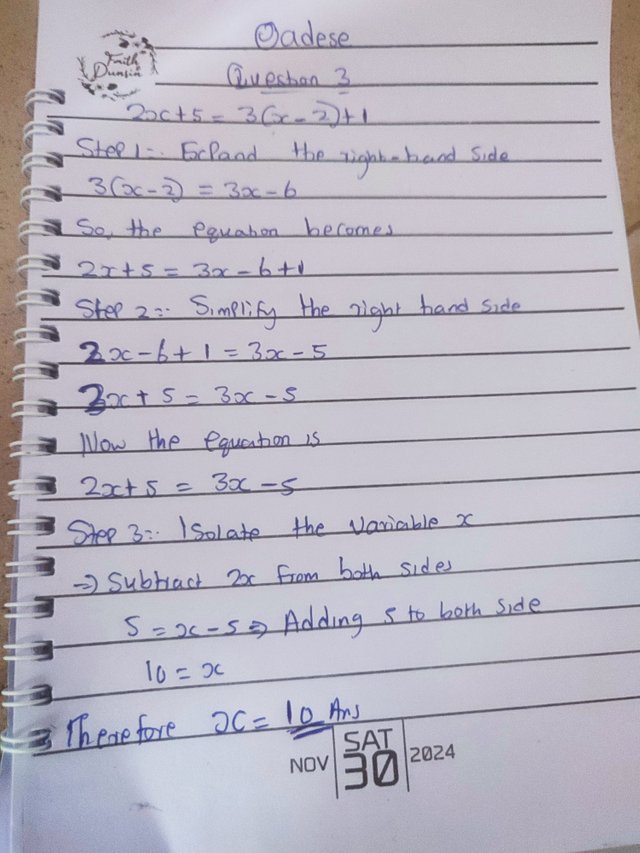 Oadese
Faith Dunsin
Question 3
2x+5 = 3(x-2)+1
Step 1:- Expand the right-hand side
3(x-2) = 3x-6
So, the equation becomes
2x+5 = 3x-6+1
Step 2:- Simplify the right hand side
3x-6+1 = 3x-5
2x+5 = 3x-5
Now the equation is
2x+5 = 3x-5
Step 3:- Isolate the variable x
⇒ Subtract 2x from both sides
5 = x-5 ⇒ Adding 5 to both side
10 = x
Therefore x = 10 Ans
NOV SAT 30 2024